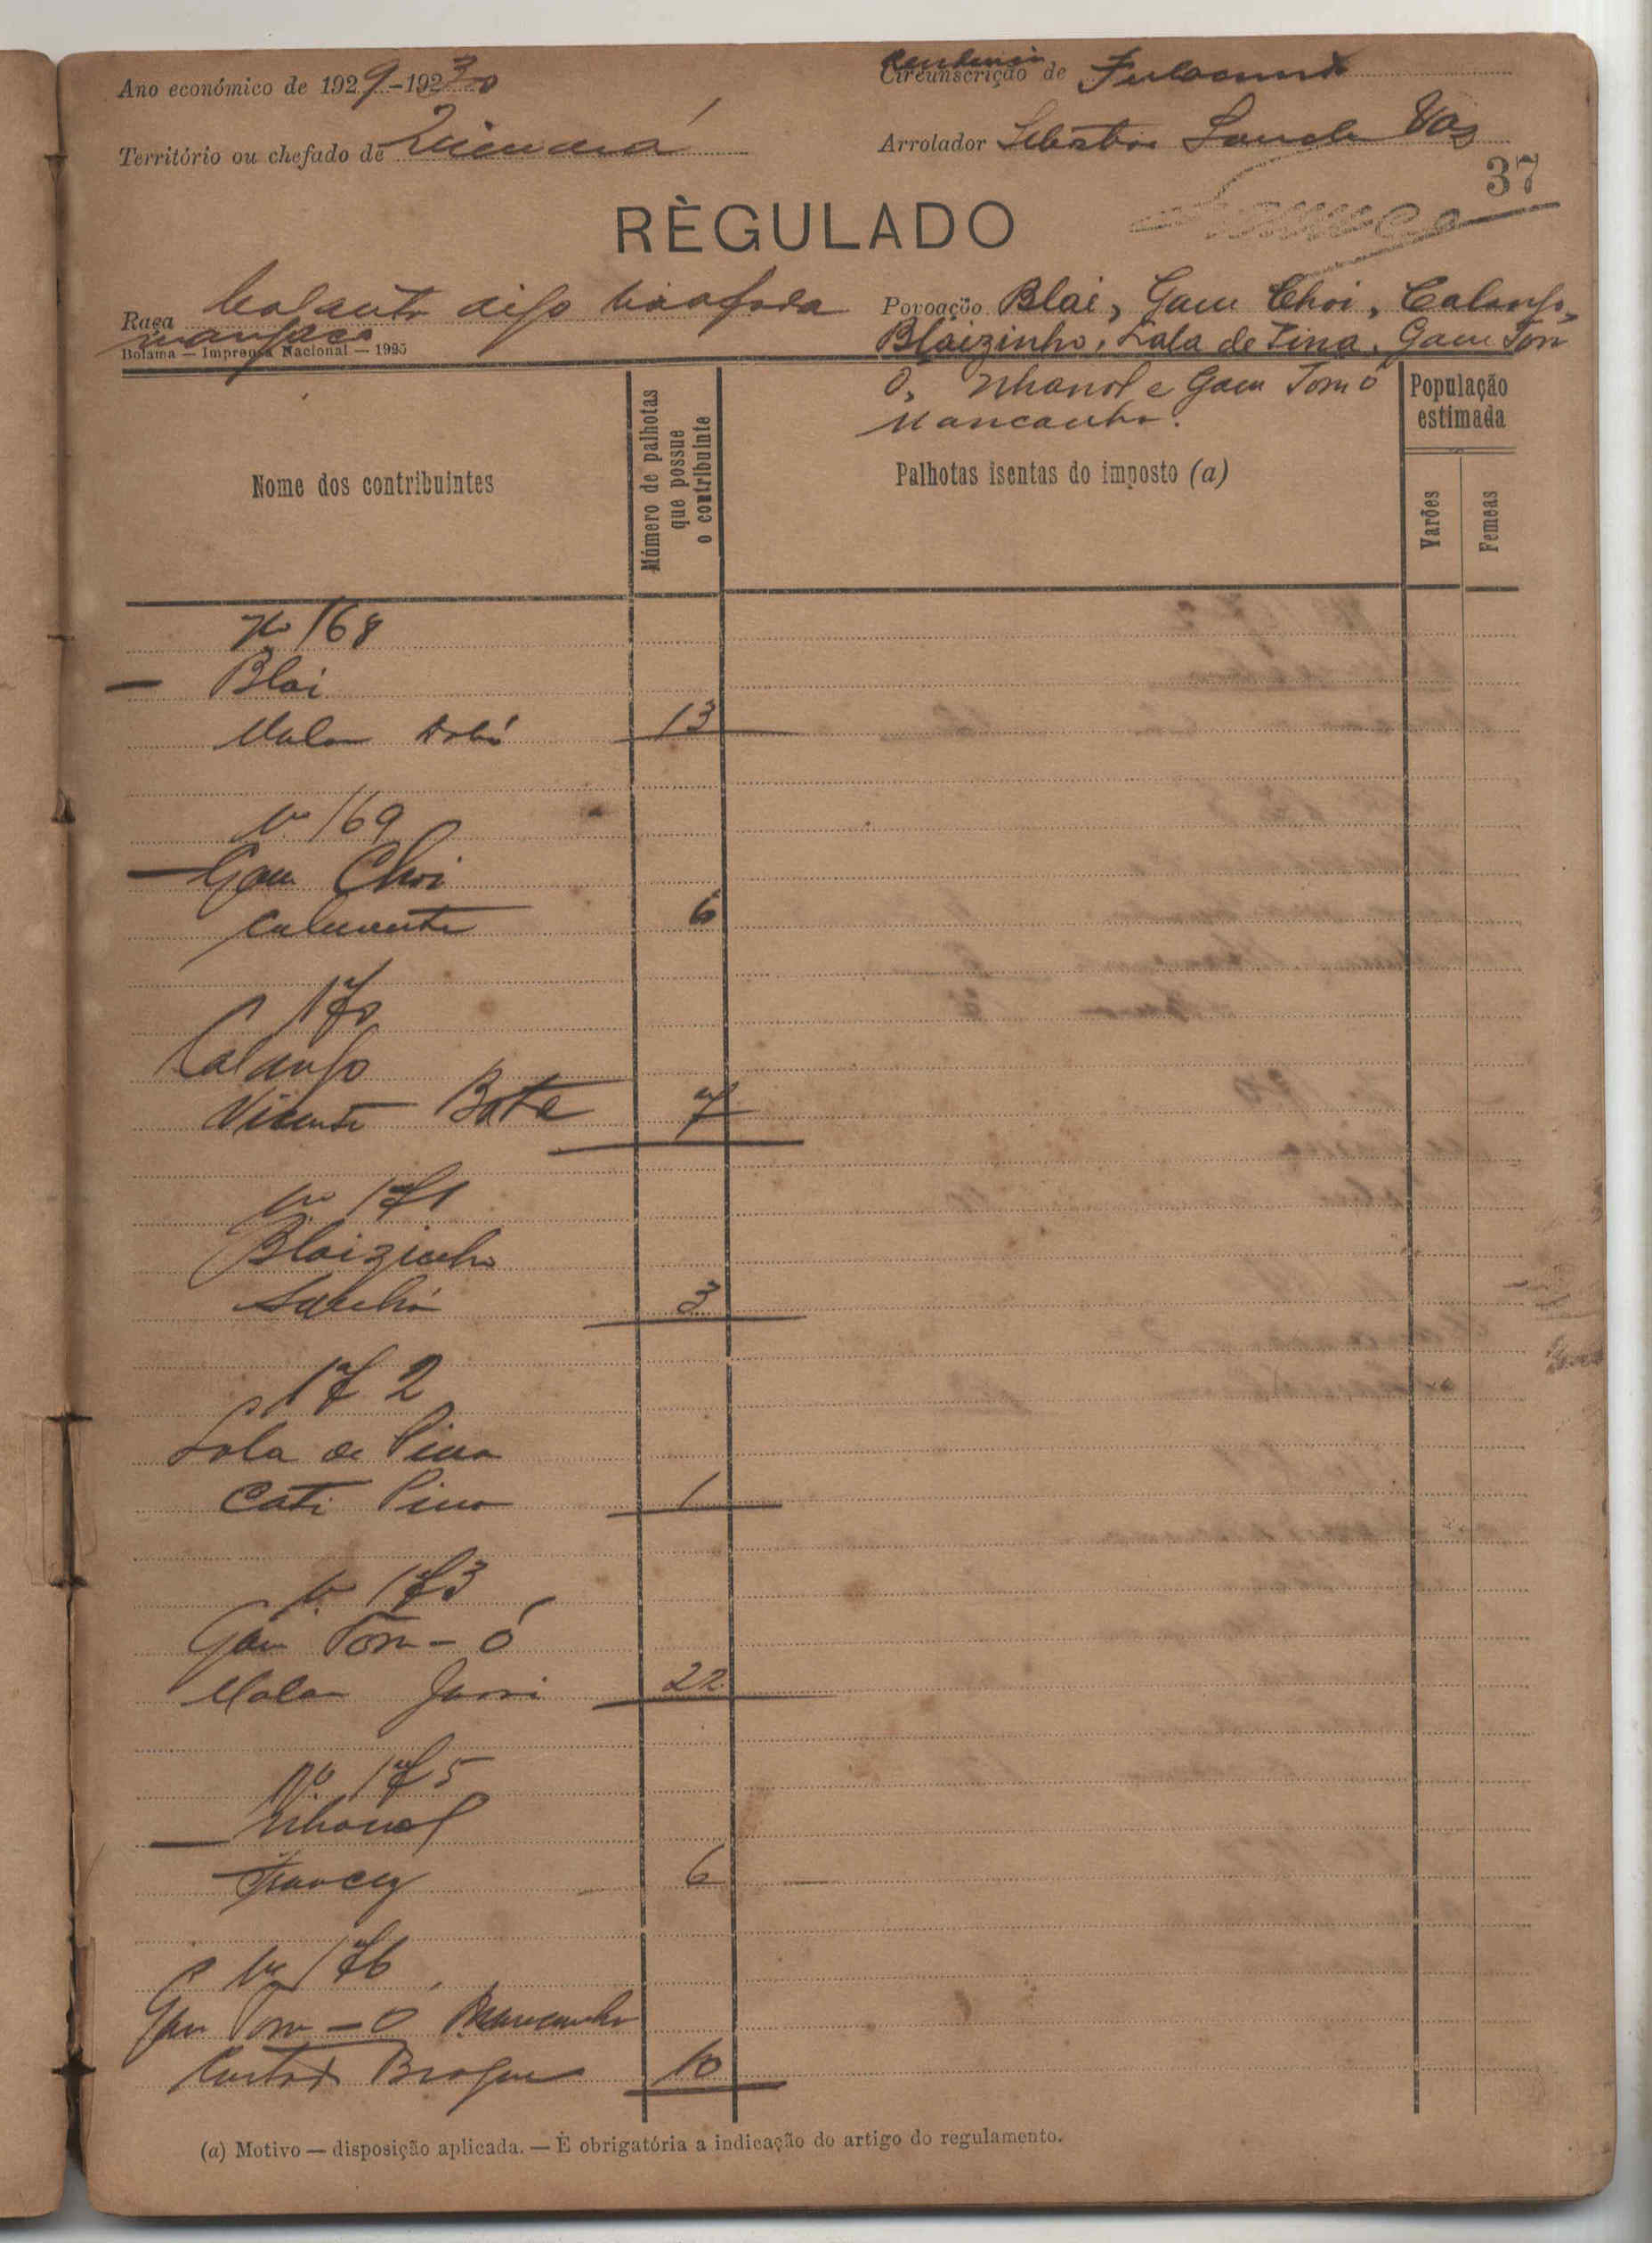 Ano económico de 1929-1930
Circunscrição de Fulacunda
Território ou chefado de Quinará
Arrolador Sebastião Vaz
37
RÈGULADO
Raça biafada
manjaco
Povoação Blai, Gam Choi, Calanfo,
Bolama — Imprensa Nacional — 1925
Blaizinho, Lala de Pina, Gam Tom
Ó, Nhanol e Gam Tom ó
Mancanha.
Nome dos contribuintes
Número de palhotas que possue o contribuinte
Palhotas isentas do imposto (a)
População estimada
Varões
Femeas
Nº 168
Blai
Malam 13
Nº 169
Gam Choi
6
170
Calanfo
Vicente 7
Nº 171
Blaizinho
3
172
Lala de Pina
Cati Pina 1
Nº 173
Gam Tom-ó
Malam 22
Nº 175
Nhanol
6
Nº 176
Gam Tom-ó Mancanha
10
(a) Motivo — disposição aplicada. — É obrigatória a indicação do artigo do regulamento.